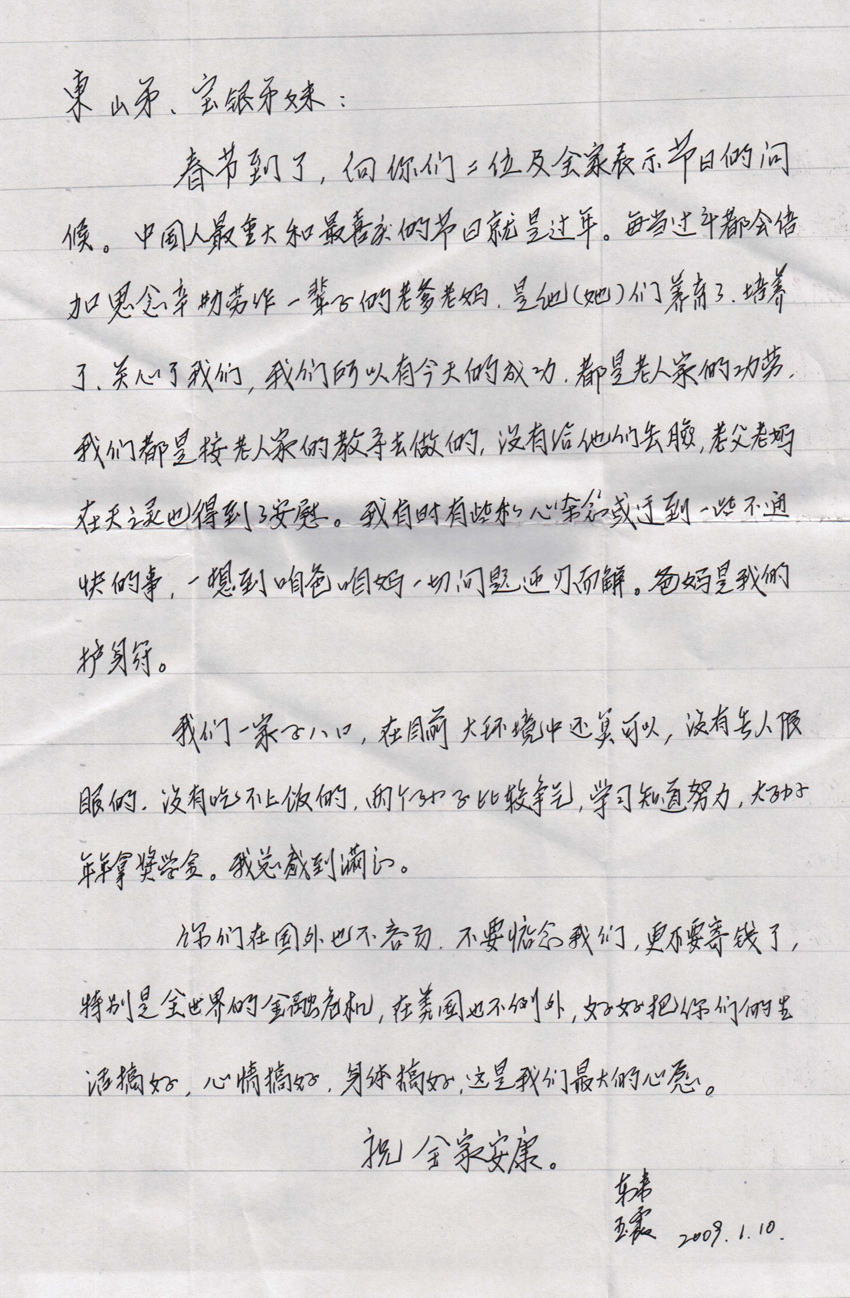 東山弟、宝银弟妹：
春节到了，向你们二位及全家表示节日的问
候。中国人最重大和最喜庆的节日就是过年。每当过年都会倍
加思念辛勤劳作一辈子的老爹老妈．是他(她)们养育了．培养
了、关心了我们，我们所以有今天的成功．都是老人家的功劳．
我们都是按老人家的教导去做的，没有给他们丢脸，老父老妈
在天之灵也得到了安慰。我有时有些私心杂念或迂到一些不通
快的事，一想到咱爸咱妈一切问题迎刃而解。爸妈是我的
护身符。
我们一家子八口，在目前大环境中还算可以，没有丢人限
眼的．没有吃不上饭的，两个孙子比较争气，学习知道努力，大孙子
年年拿奖学金。我总感到满足。
你们在国外也不容易．不要惦念我们，更不要寄钱了，
特别是全世界的金融危机，在美国也不例外，好好把你们的生
活搞好，心情搞好．身体搞好，这是我们最大的心愿。
祝 全家安康。
玉霞 2009.1.10.